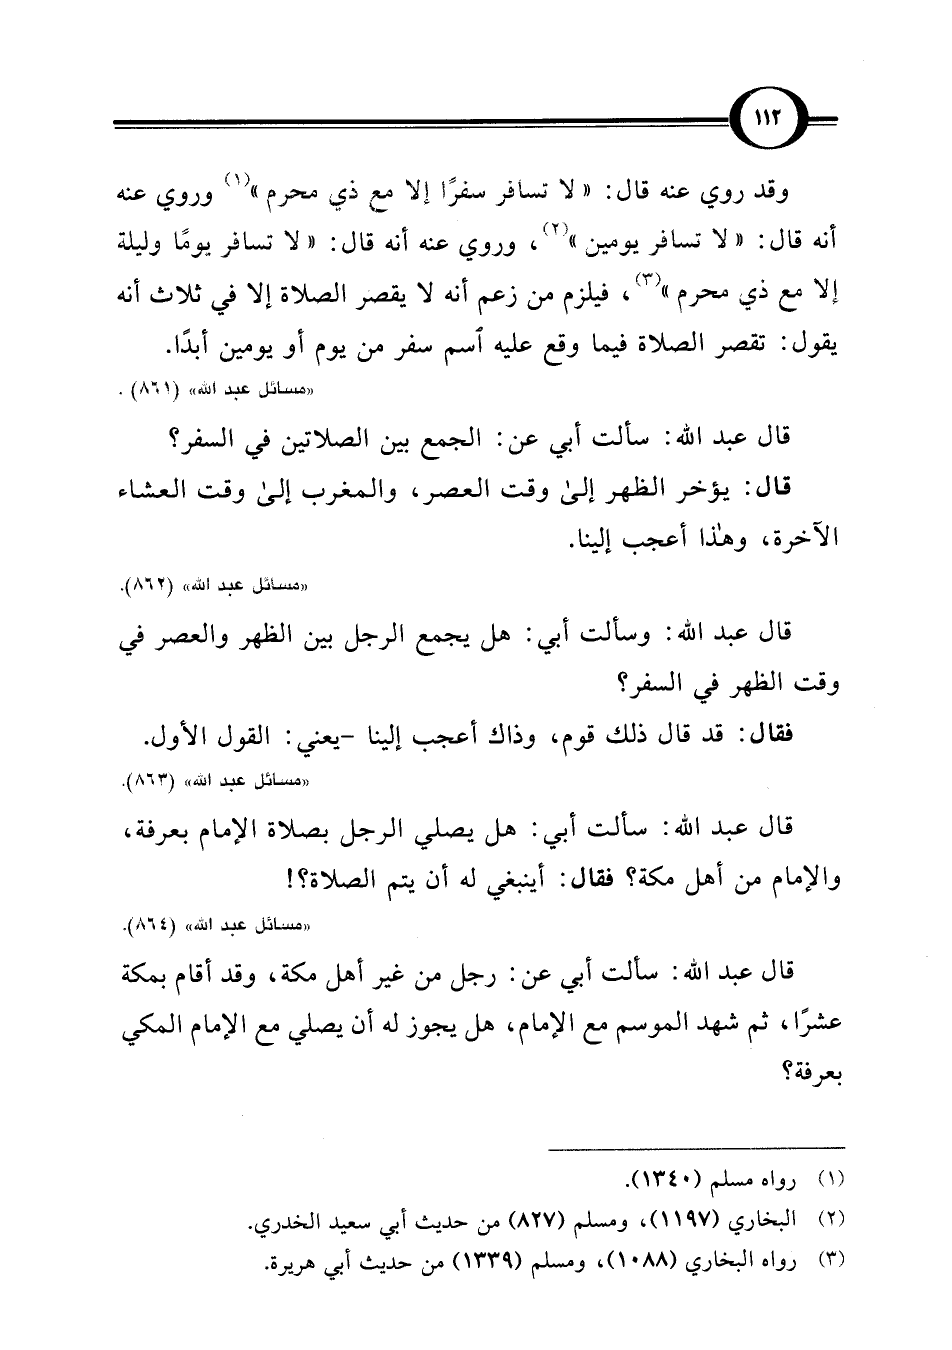 ١١٢
وقد روي عنه قال: « لا تسافر سفرًا إلا مع ذي محرم »(١) وروي عنه
أنه قال: « لا تسافر يومين »(٢)، وروي عنه أنه قال: « لا تسافر يومًا وليلة
إلا مع ذي محرم »(٣)، فيلزم من زعم أنه لا يقصر الصلاة إلا في ثلاث أنه
يقول: تقصر الصلاة فيما وقع عليه ٱسم سفر من يوم أو يومين أبدًا.
«مسائل عبد الله» (٨٦١) .
قال عبد الله: سألت أبي عن: الجمع بين الصلاتين في السفر؟
قال: يؤخر الظهر إلىٰ وقت العصر، والمغرب إلىٰ وقت العشاء
الآخرة، وهٰذا أعجب إلينا.
«مسائل عبد الله» (٨٦٢).
قال عبد الله: وسألت أبي: هل يجمع الرجل بين الظهر والعصر في
وقت الظهر في السفر؟
فقال: قد قال ذلك قوم، وذاك أعجب إلينا -يعني: القول الأول.
«مسائل عبد الله» (٨٦٣).
قال عبد الله: سألت أبي: هل يصلي الرجل بصلاة الإمام بعرفة،
والإمام من أهل مكة؟ فقال: أينبغي له أن يتم الصلاة؟!
«مسائل عبد الله» (٨٦٤).
قال عبد الله: سألت أبي عن: رجل من غير أهل مكة، وقد أقام بمكة
عشرًا، ثم شهد الموسم مع الإمام، هل يجوز له أن يصلي مع الإمام المكي
بعرفة؟
(١) رواه مسلم (١٣٤٠).
(٢) البخاري (١١٩٧)، ومسلم (٨٢٧) من حديث أبي سعيد الخدري.
(٣) رواه البخاري (١٠٨٨)، ومسلم (١٣٣٩) من حديث أبي هريرة.